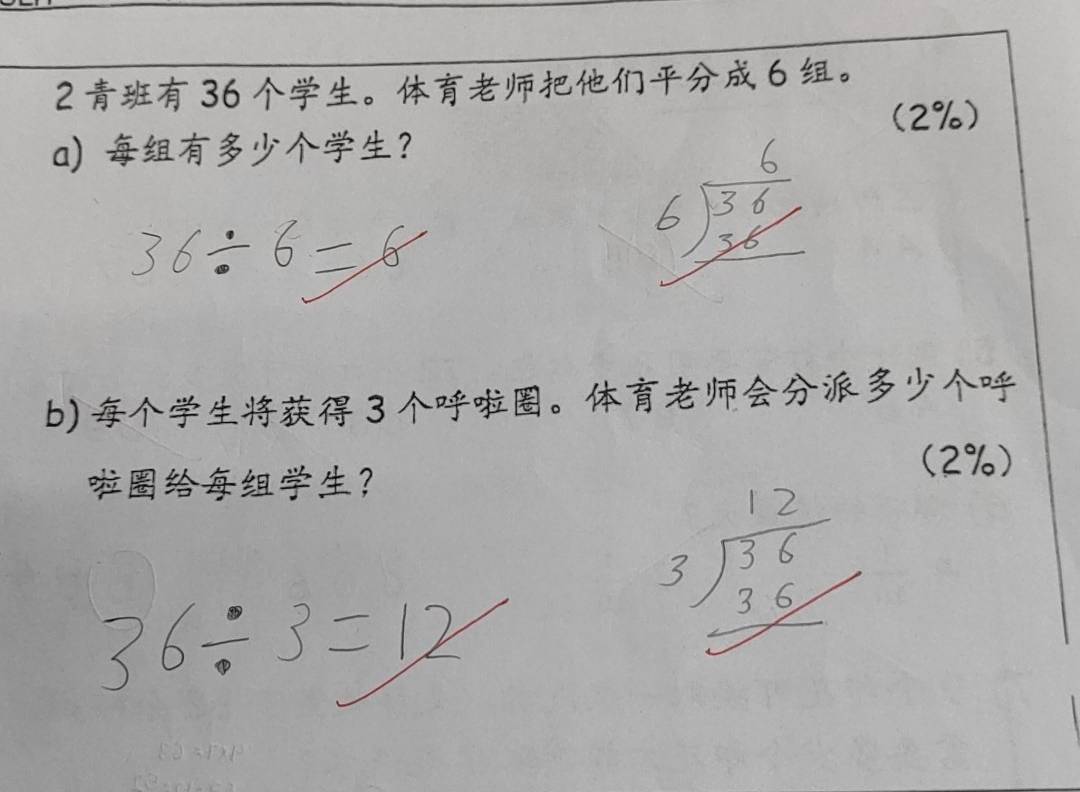 2青班有36个学生。体育老师把他们平分成6组。
(2%)
a) 每组有多少个学生?
6
6 36
36
36÷6=6
b) 每个学生将获得3个呼啦圈。体育老师会分派多少个呼
(2%)
啦圈给每组学生?
12
3 36
36
36÷3=12